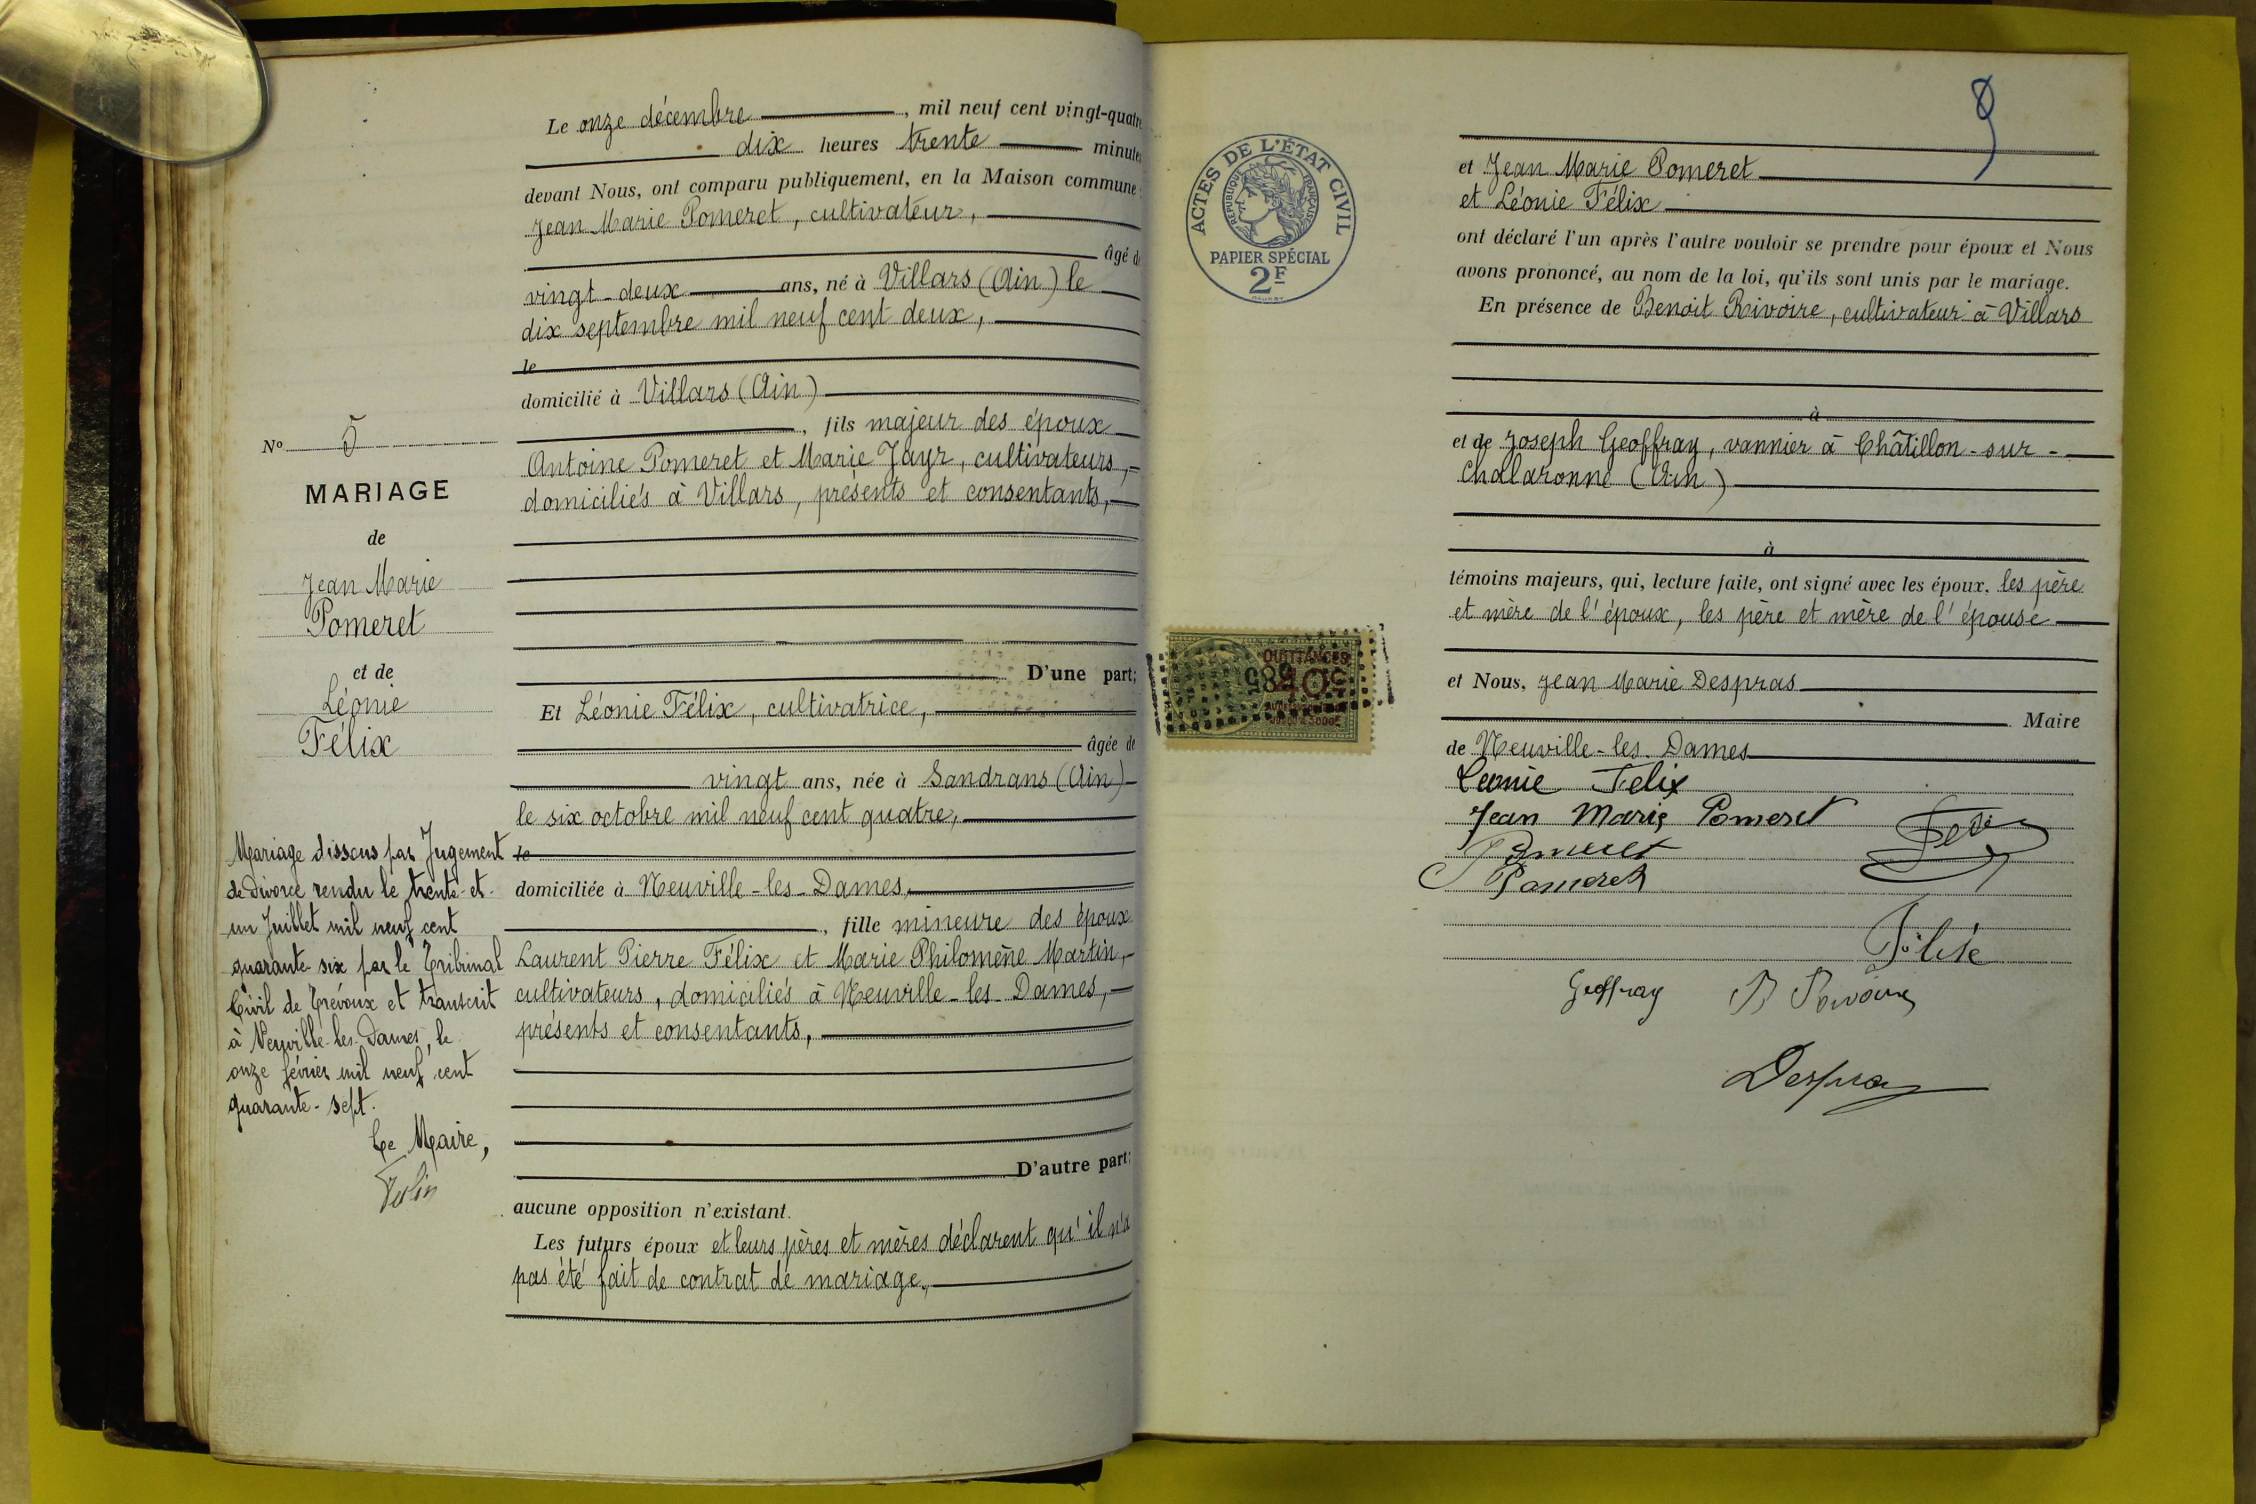 Le onze décembre, mil neuf cent vingt-quatre
dix heures trente minutes
devant Nous, ont comparu publiquement, en la Maison commune
Jean Marie Pomeret, cultivateur,
âgé de
vingt-deux ans, né à Villars (Ain) le
dix septembre mil neuf cent deux,
le
domicilié à Villars (Ain)
, fils majeur des époux
Antoine Pomeret et Marie Jayr, cultivateurs,
domiciliés à Villars, présents et consentants,
D'une part;
Et Léonie Félix, cultivatrice,
âgée de
vingt ans, née à Sandrans (Ain)
le six octobre mil neuf cent quatre,
le
domiciliée à Neuville-les-Dames,
, fille mineure des époux
Laurent Pierre Félix et Marie Philomène Martin,
cultivateurs, domiciliés à Neuville-les-Dames,
présents et consentants,
D'autre part;
aucune opposition n'existant.
Les futurs époux et leurs pères et mères déclarent qu'il n'a
pas été fait de contrat de mariage,
No 5
MARIAGE
de
Jean Marie
Pomeret
et de
Léonie
Félix
Mariage dissous par Jugement
de Divorce rendu le trente-et-
un Juillet mil neuf cent
quarante-six par le Tribunal
Civil de Trévoux et transcrit
à Neuville-les-Dames, le
onze février mil neuf cent
quarante-sept.
Le Maire,
9
ACTES DE L'ÉTAT CIVIL
RÉPUBLIQUE FRANÇAISE
PAPIER SPÉCIAL
2F
et Jean Marie Pomeret
et Léonie Félix
ont déclaré l'un après l'autre vouloir se prendre pour époux et Nous
avons prononcé, au nom de la loi, qu'ils sont unis par le mariage.
En présence de Benoit Rivoire, cultivateur à Villars
à
et de Joseph Geoffray, vannier à Châtillon-sur-
Chalaronne (Ain)
à
témoins majeurs, qui, lecture faite, ont signé avec les époux, les père
et mère de l'époux, les père et mère de l'épouse
QUITTANCES
et Nous, Jean Marie Despras
Maire
de Neuville-les-Dames
Leonie Felix
Jean Marie Pomeret
Pomeret
Pomeret
Geoffray
Despras